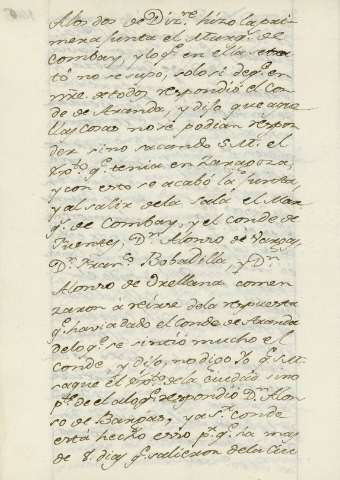 A los dos de Diz.re hizo la pri-
mera junta el Marq.s de
Lombay, y lo q.e en ella se tra-
tó no se supo, solo si de q.e en
nre. de todos respondió el Con-
de de Aranda, y dijo que aque-
llas cosas no se podian respon-
der sino sacando S. M. el
q.e tenia en Zaragoza,
y con esto se acabó la Junta,
y al salir de la Sala el Mar-
q.s de Lombay, y el Conde de
Fuentes, D.n Alonso de Vargas,
D.n Fran.co Bobadilla, y D.n
Alonso de Orellana comen-
zaron á reirse de la respuesta
q.e havia dado el Conde de Aranda
de lo q.e se sintió mucho el
Conde y dijo, no digo Yo q.e S. M.
saque el de la Ciudad sino
de el a lo q.e respondió D.n Alon-
so de Bargas, ya S.r Conde
está hecho esso p.r q.e ha mas
de 8 dias q.e salieron de la Ciu-